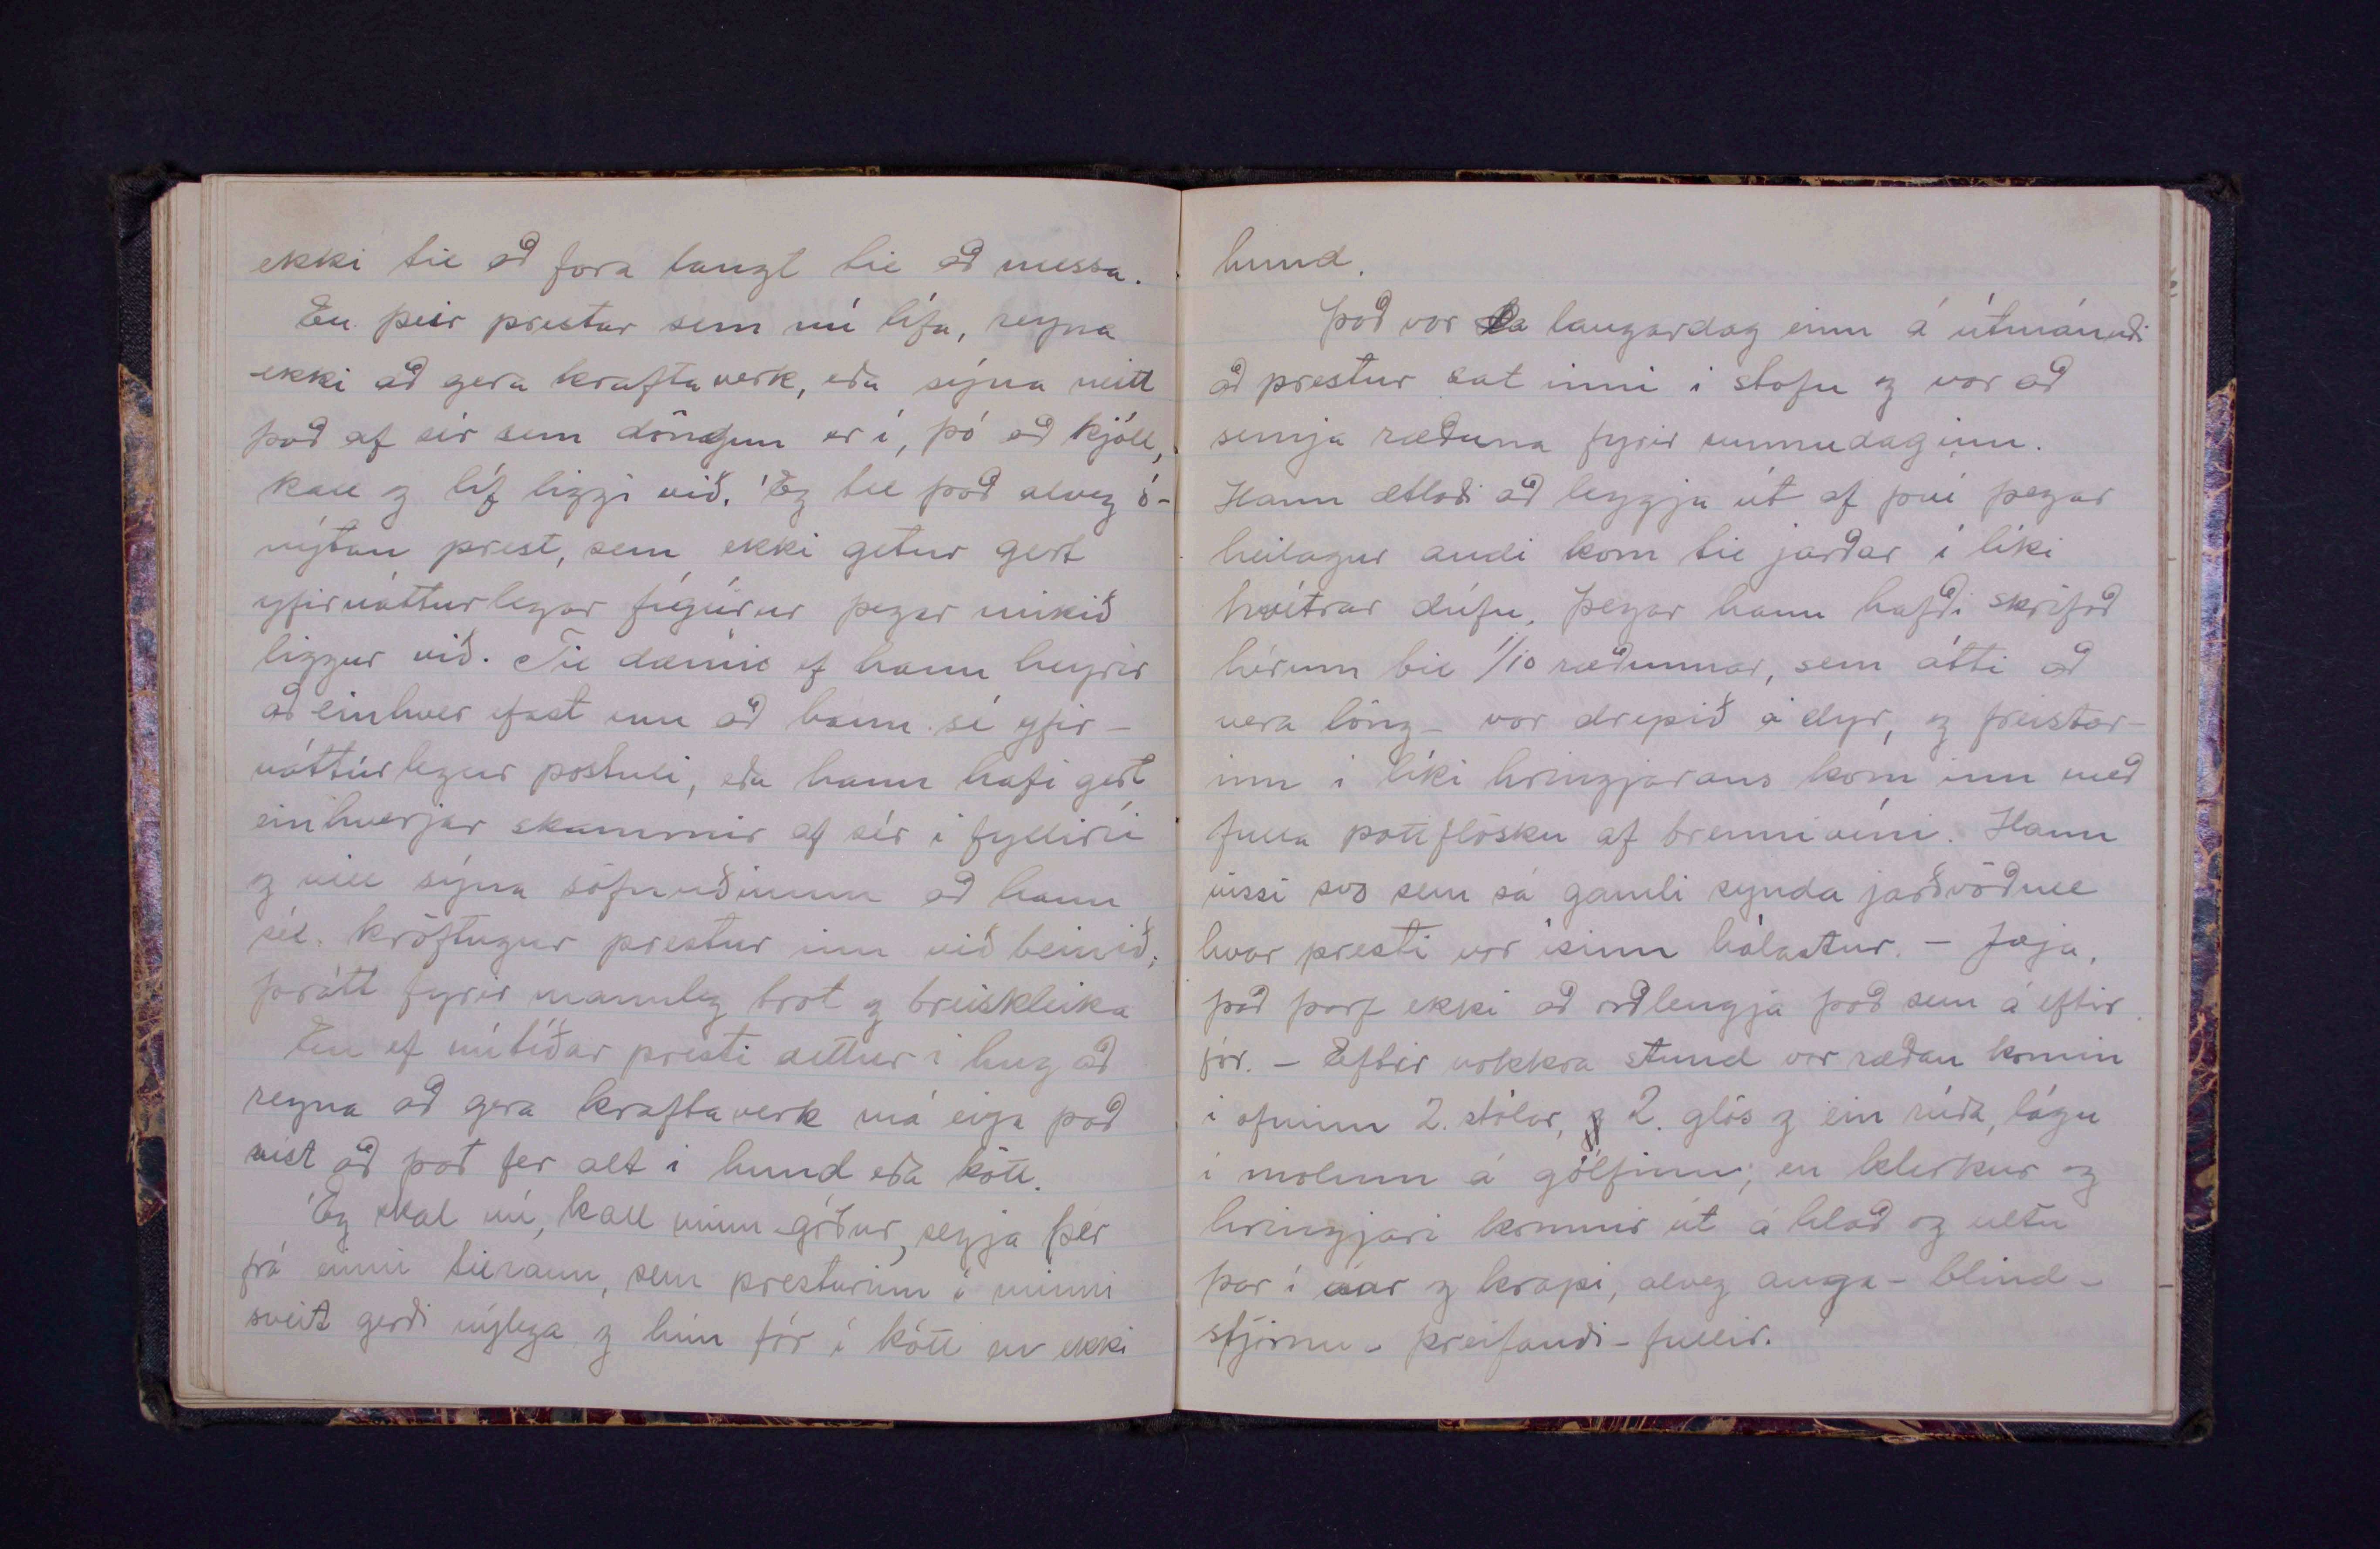 ekki til að fara langt til að messa.
En þeir prestar sem nú lifa, reyna
ekki að gera kraftaverk, eða sýna neitt
það af sér sem döngun er í, þó að kjóll,
kall og líf liggi við. Ég tel það alveg ó-
nýtan prest, sem ekki getur gert
yfirnáttúrlegar fígúrur þegar mikið
liggur við. Til dæmis ef hann heyrir
að einhver efast um að hann sé yfir-
náttúrlegur postuli, eða hann hafi gert
einhverjar skammir af sér í fylliríi
og vill sýna söfnuðinum að hann
sé kröftugur prestur inn við beinið,
þrátt fyrir mannleg brot og breiskleika
En ef nútíðar presti dettur í hug að
reyna að gera kraftaverk má eiga það
víst að það fer alt í hund eða kött.
Ég skal nú, kall minn góður, segja þér
frá einni tilraun, sem presturinn í minni
sveit gerði nýlega og hún fór í kött en ekki
hund.
Það var laugardag einn á útmánuði
að prestur sat inni í stofu og var að
semja ræðuna fyrir sunnudaginn.
Hann ætlaði að leggja út af því þegar
heilagur andi kom til jarðar í líki
hvítrar dúfu. Þegar hann hafði skrifað
hérum bil 1/10 ræðunnar, sem átti að
vera löng - var drepið á dyr, og freistar-
inn í líki hringjarans kom inn með
fulla pottflösku af brennivíni. Hann
vissi svo sem sá gamli synda jarðvöðull
hvar presti var ísinn hálastur. - Jæja,
það þarf ekki að orðlengja það sem á eftir
fór. - Eftir nokkra stund var ræðan komin
í ofninn 2. stólar, 2. glös og ein rúða, lágu
í molum á gólfinu; en klerkur og
hringjari komnir út á hlað og ultu
þar í aur og krapi, alveg auga - blind -
stjörnu - þreifandi - fullir.